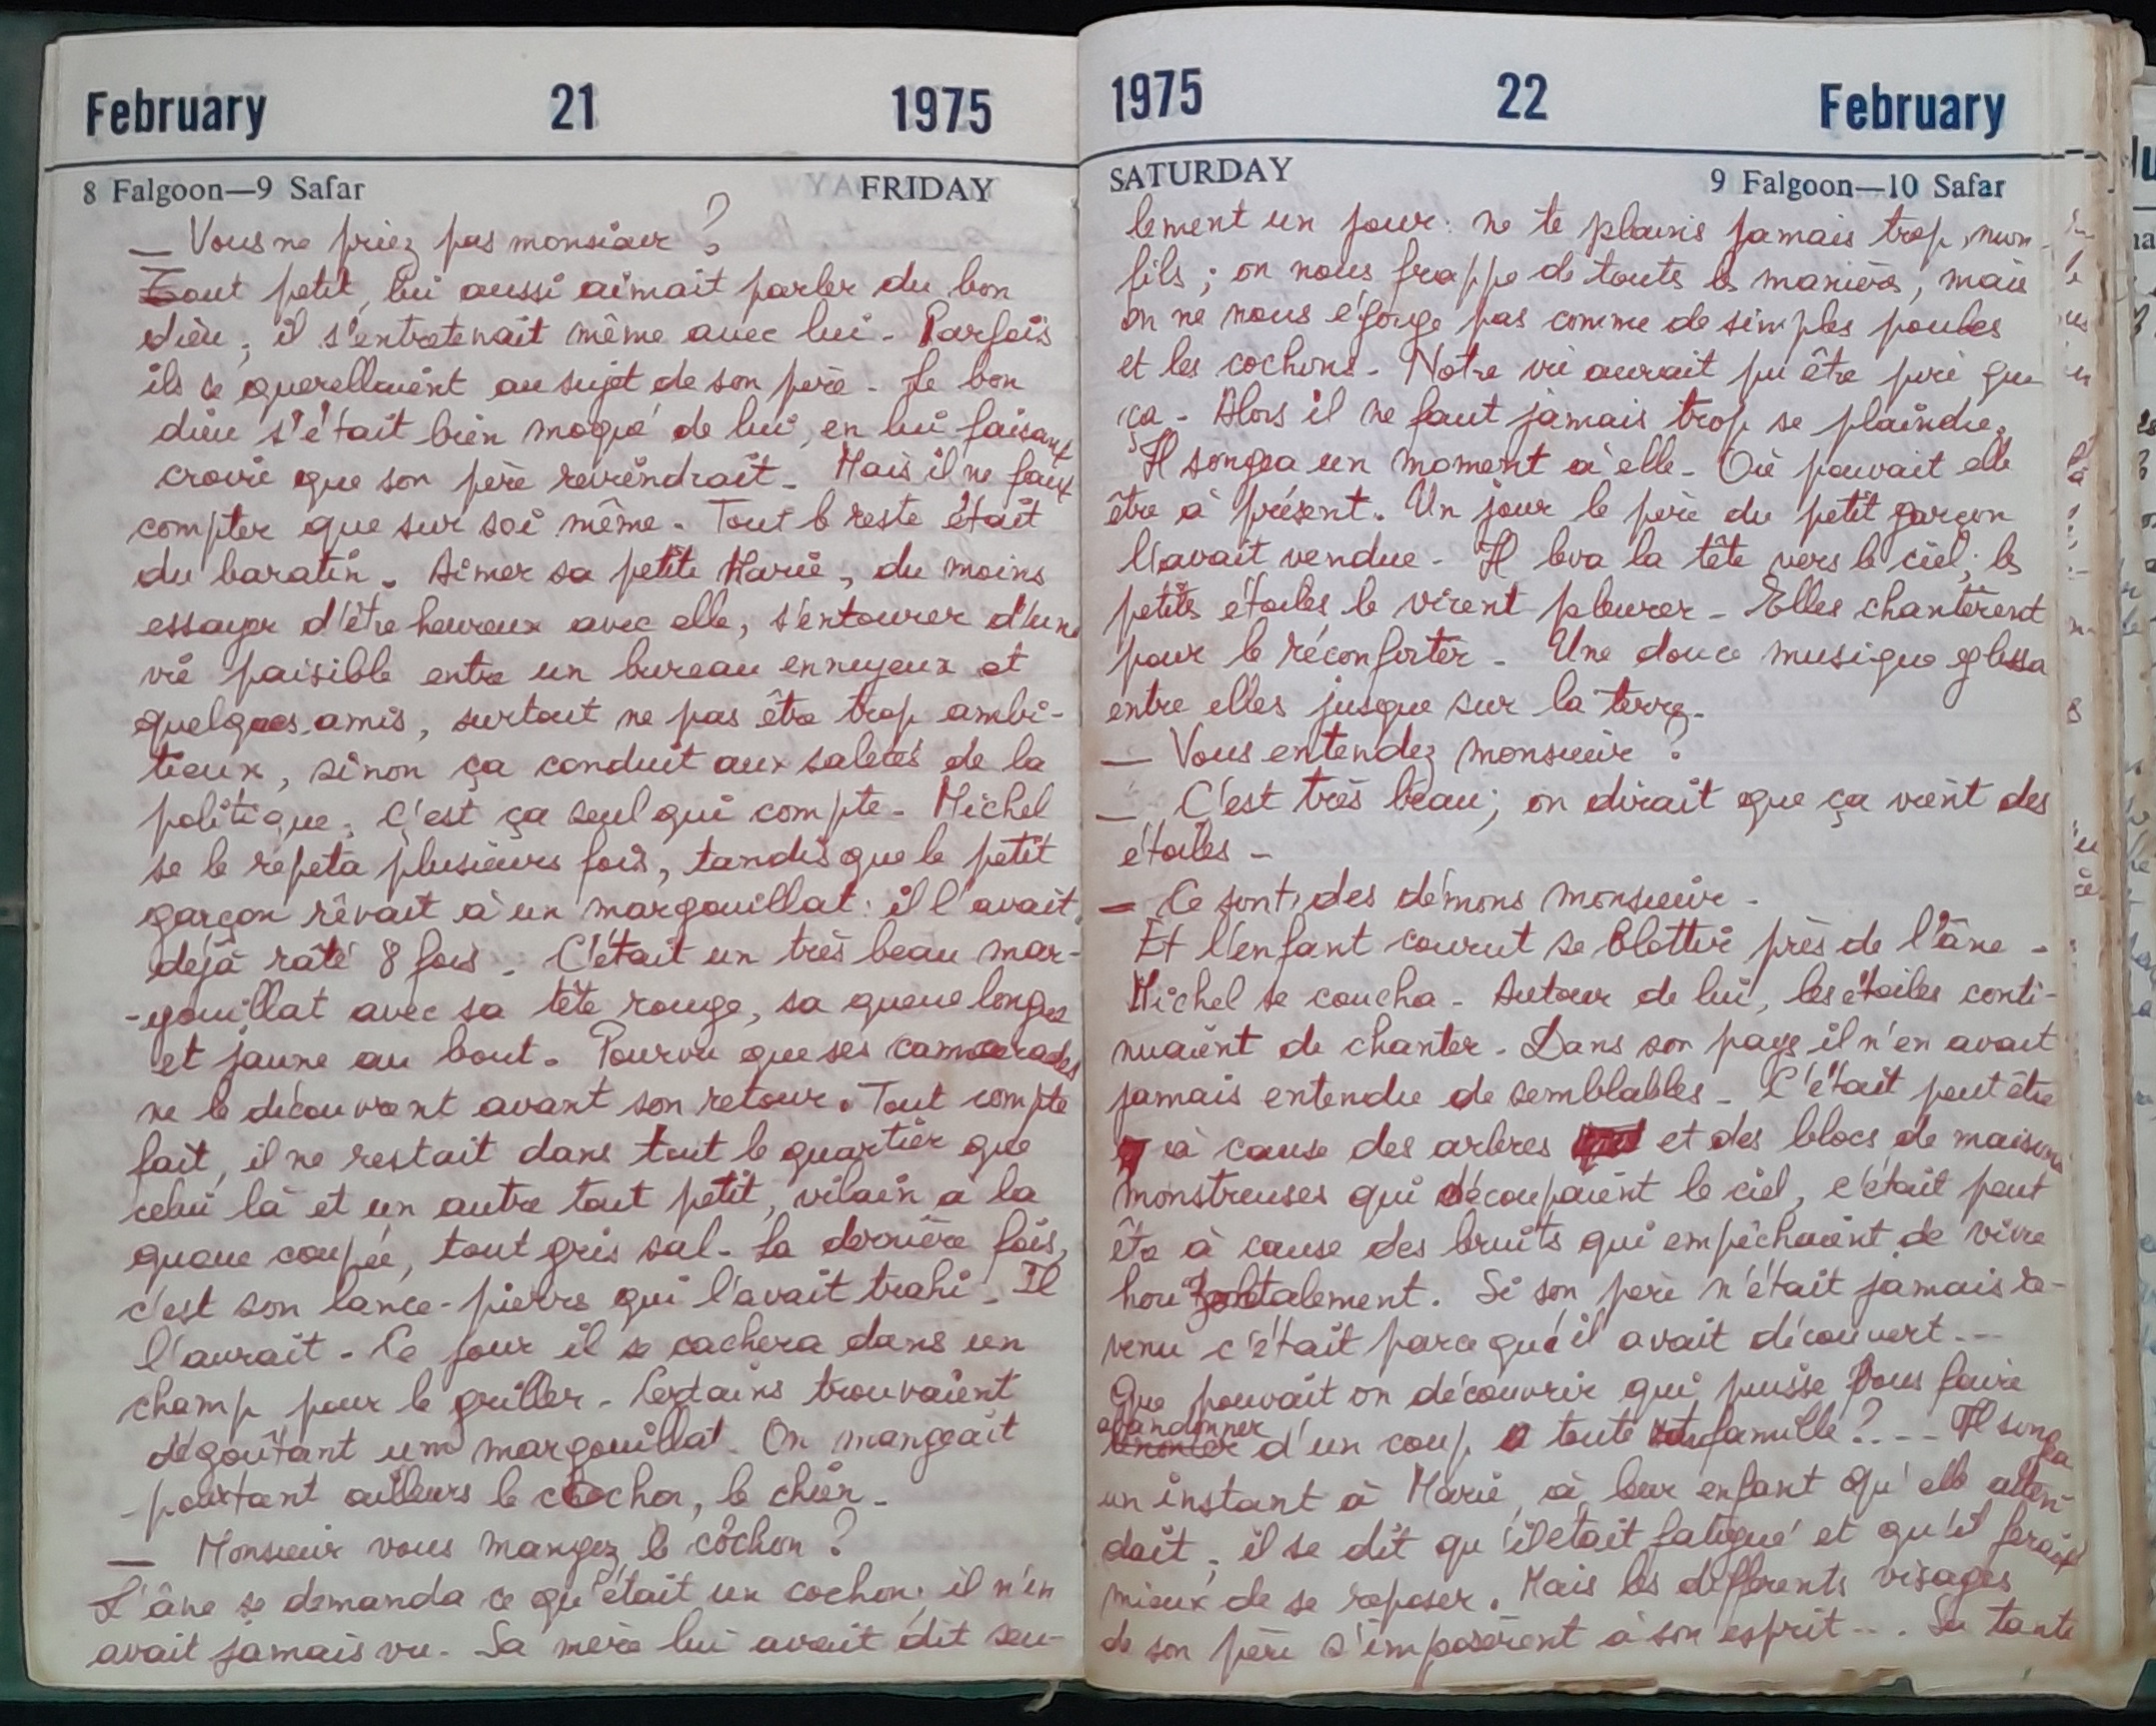 February 21 1975
8 Falgoon—9 Safar FRIDAY
— Vous ne priez pas monsieur ?
Tout petit, lui aussi aimait parler du bon
dieu ; il s'entretenait même avec lui - Parfois
ils se querellaient au sujet de son père - Le bon
dieu s'était bien moqué de lui, en lui faisant
croire que son père reviendrait - Mais il ne faut
compter que sur soi même. Tout le reste était
du baratin. Aimer sa petite Marie, du moins
essayer d'être heureux avec elle, s'entourer d'une
vie paisible entre un bureau ennuyeux et
quelques amis, surtout ne pas être trop ambi-
tieux, sinon ça conduit aux saletés de la
politique. C'est ça seul qui compte - Michel
se le répéta plusieurs fois, tandis que le petit
garçon rêvait à un margouillat : il l'avait
déjà râté 8 fois. C'était un très beau mar-
-gouillat avec sa tête rouge, sa queue longue
et jaune au bout. Pourvu que ses camarades
ne le découvrent avant son retour. Tout compte
fait, il ne restait dans tout le quartier que
celui là et un autre tout petit, vilain à la
queue coupée, tout gris sal - La dernière fois,
c'est son lance-pierre qui l'avait trahi - Il
l'aurait - Ce jour il se cachera dans un
champ pour le griller - Certains trouvaient
dégoûtant un margouillat. On mangeait
pourtant ailleurs le cochon, le chien -
— Monsieur vous mangez le cochon ?
L'âne se demanda ce qu'était un cochon ; il n'en
avait jamais vu - Sa mère lui avait dit seu-
1975 22 February
SATURDAY 9 Falgoon—10 Safar
lement un jour : ne te plains jamais trop, mon
fils ; on nous frappe de toute les manières, mais
on ne nous égorge pas comme de simples poules
et les cochons - Notre vie aurait pu être pire que
ça - Alors il ne faut jamais trop se plaindre.
Il songea un moment à elle - Où pouvait elle
être à présent. Un jour le père du petit garçon
l'avait vendue - Il leva la tête vers le ciel ; les
petites étoiles le virent pleurer - Elles chantèrent
pour le réconforter - Une douce musique glissa
entre elles jusque sur la terre.
— Vous entendez monsieur ?
— C'est très beau ; on dirait que ça vient des
étoiles -
— Ce sont des démons monsieur -
Et l'enfant courut se blottir près de l'âne -
Michel se coucha - Autour de lui, les étoiles conti-
nuaient de chanter - Dans son pays il n'en avait
jamais entendu de semblables - C'était peut être
à cause des arbres et des blocs de maisons
monstrueuses qui découpaient le ciel, c'était peut
être à cause des bruits qui empêchaient de vivre
horizontalement. Si son père n'était jamais re-
venu c'était parce qu'il avait découvert ...
Que pouvait on découvrir qui puisse vous faire
abandonner d'un coup toute famille ? ... Il songea
un instant à Marie, à leur enfant qu'elle atten-
dait ; il se dit qu'il était fatigué et qu'il ferait
mieux de se reposer. Mais les différents visages
de son père s'imposèrent à son esprit ... Sa tante